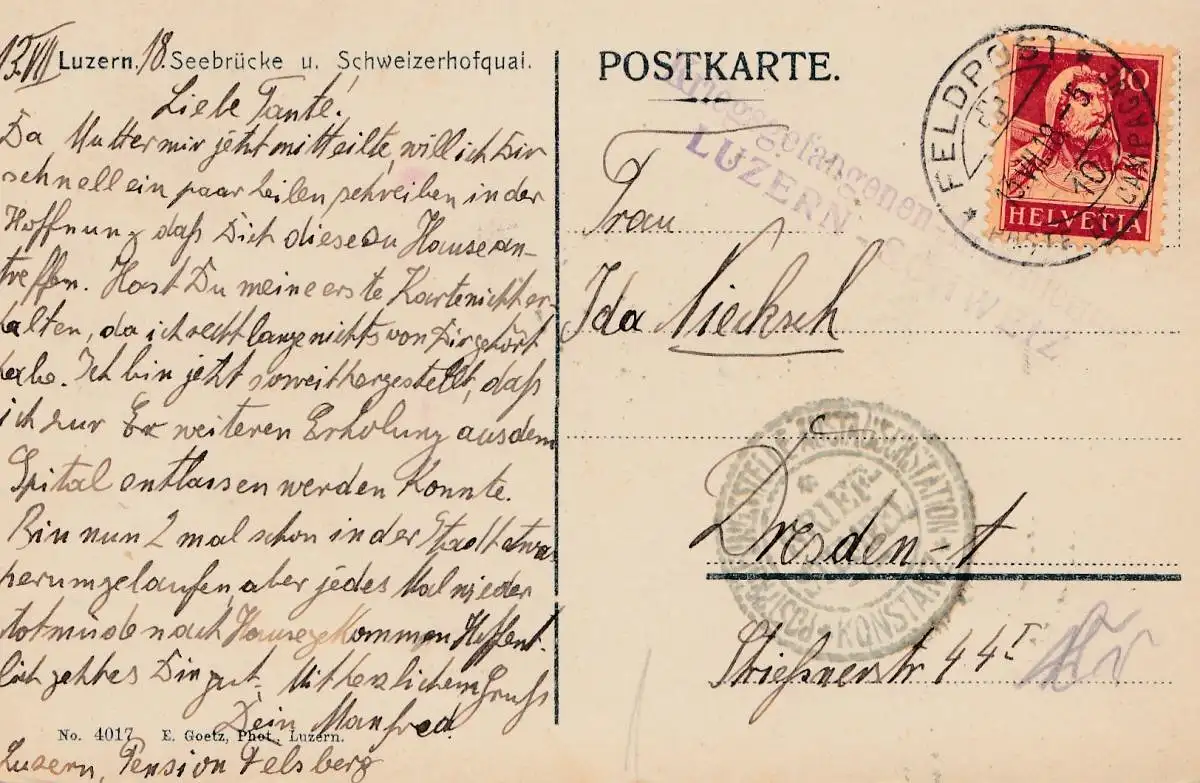 13.VII Luzern. 18. Seebrücke u. Schweizerhofquai.
Liebe Tante!
Da Mutter mir jetzt mitteilte, will ich Dir
schnell ein paar Zeilen schreiben in der
Hoffnung daß Dich diese zu Hause an-
treffen. Hast Du meine erste Karte nicht er
halten, da ich recht lange nichts von Dir gehört
habe. Ich bin jetzt soweit hergestellt, daß
ich zur weiteren Erholung aus dem
Spital entlassen werden konnte.
Bin nun 2 mal schon in der Stadt etwas
herumgelaufen aber jedes Mal wieder
totmüde nach Hause gekommen. Hoffent-
lich geht es Dir gut. Mit herzlichem Gruß
Dein Manfred.
No. 4017 E. Goetz, Phot. Luzern.
Luzern, Pension Felsberg
POSTKARTE.
Kriegsgefangenen
LUZERN - SCHWEIZ
FELDPOST
15.VII.18-5
10
CAMPAGNE
30
HELVETIA
Frau
Ida Niecksch
Dresden-A
Strießnerstr 44 I
AUSTAUSCHSTATION
BRIEF
KONSTANZ